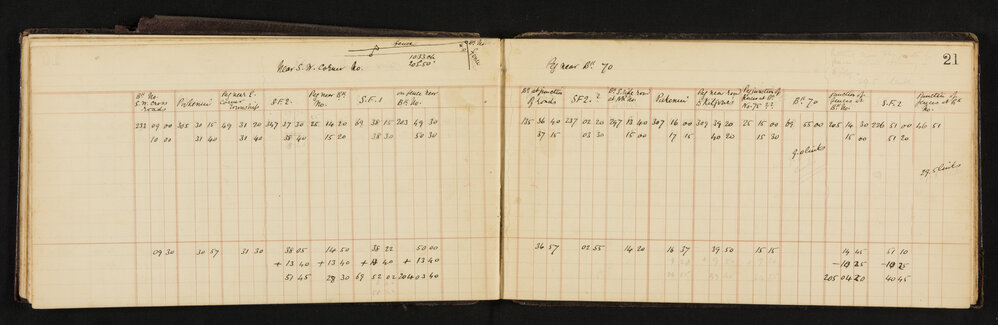 fence
Bk No.
fence
1033 ch.
205.50'
Near S.W. Corner No.
Bk No. S.W. cross roads
Pokenui
Peg near E. Corner Township
S.F.2.
Peg near Bk No.
S.F.1
on fence near Bk No.
232 09 00 305 30 15 49 31 20 347 37 30 25 14 20 69 38 15 203 49 30
10 00 31 40 31 40 38 40 15 20 38 30 50 30
09 30 30 57 31 30 38 05 14 50 38 22 50 00
+ 13 40 + 13 40 + 13 40 + 13 40
51 45 28 30 69 52 02 204 03 40
21
Peg near Bk 70
Bk at junction of roads
S.F.2.
Bk S. side road at No.
Pokenui
Peg near road
Peg junction of fences at Bk No. 75
Bk 70
Junction of fences at Bk No
S.F.2
Junction of fences at Bk No.
135 36 40 237 02 20 247 13 40 307 16 00 309 39 20 25 15 00 69 55 00 205 14 30 226 51 00 46 51
37 15 03 30 15 00 17 15 40 20 15 30 15 00 51 20
9.0 links
29.5 links
36 57 02 55 14 20 16 37 39 50 15 15 14 45 51 10
-10 25 -10 25
205 04 20 40 45